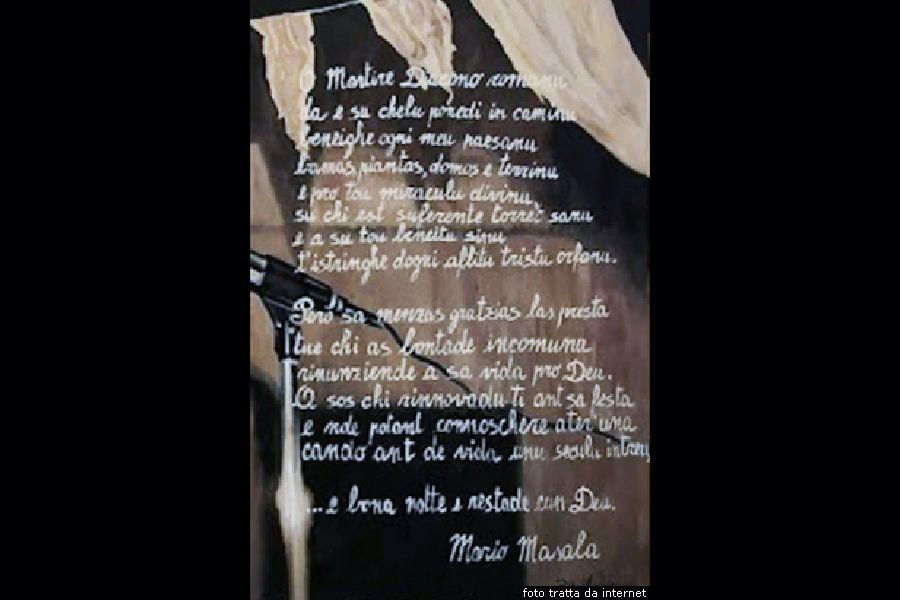 O Martire Diacono romanu
da e su chelu ponedi in caminu
beneighe ogni meu paesanu
bamas, piantas, domos e terrinu
e pro tou miraculu divinu,
su chi est suferente torret sanu
e a su tou beneitu sinu
t'istringhe dogni aflitu tristu orfanu.
Pero' sa menzas gratzias las presta
tue chi as bontade incomuna
rinunziende a sa vida pro Deu.
O sos chi rinnovadu ti ant sa festa
e nde potant connoschere ater'una
cando ant de vida unu seculu intreu
...e bona notte e restade cun Deu.
Mario Masala
foto tratta da internet